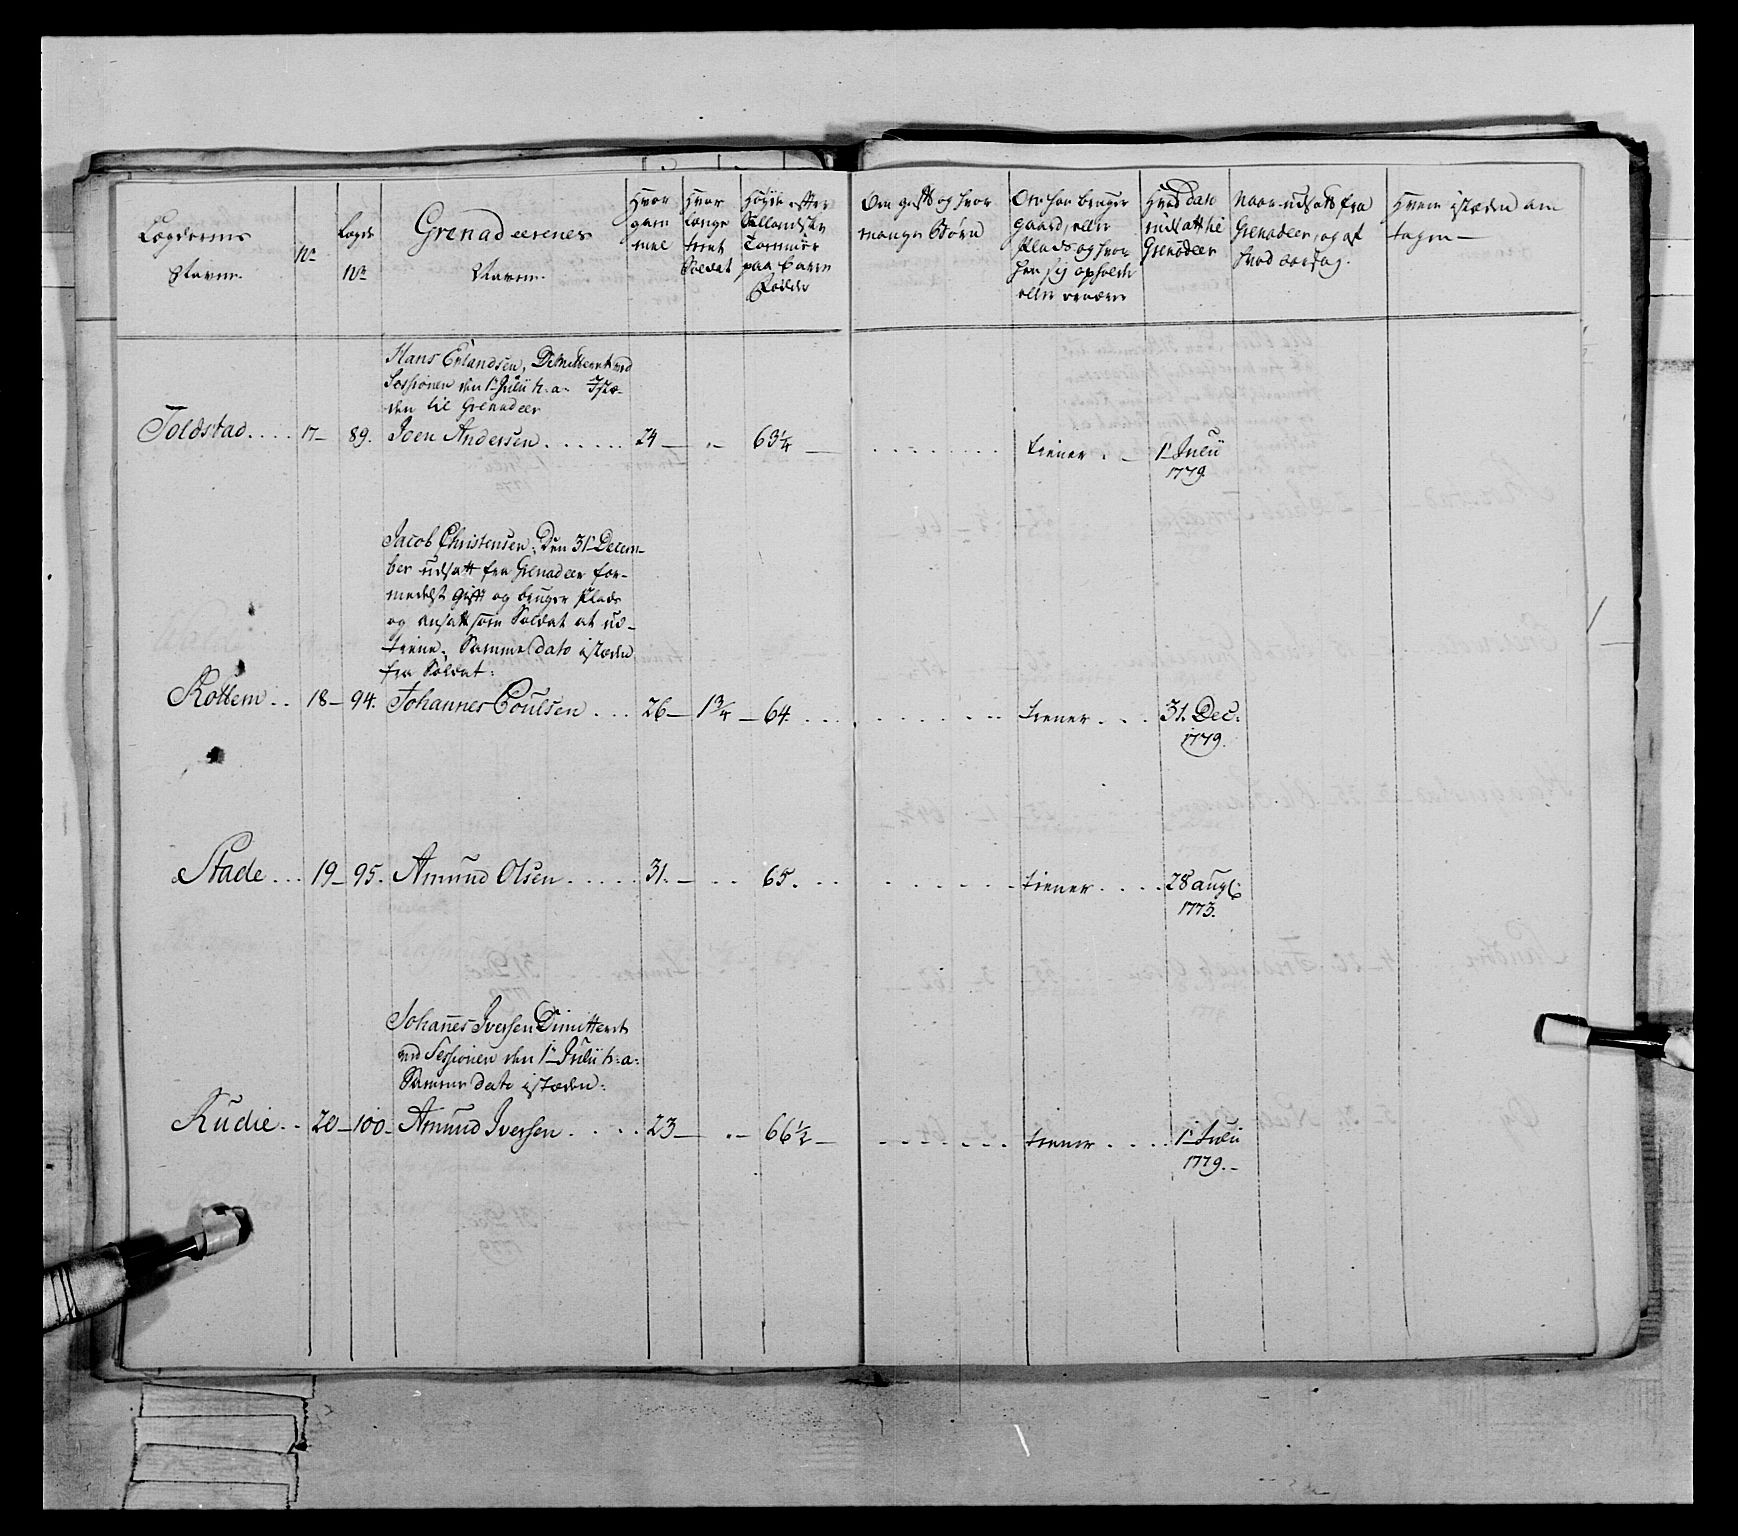 Lægdernes
Navne.
No
Lægds
No
Grenadeerenes
Navne.
Hvor
gam
mel
Hvor
længe
tient
Soldat
Høyde efter
Sællandske
Tommer
paa bare
Fødder
Om gift og hvor
mange Børn
Om han bruger
gaard, eller
Plads og hvor
han sig opholder
eller værer
Hvad dato
indsatt til
Grenadeer
Naar udsatt fra
Grenadeer, og af
hvad aarsag.
Hvem isteden an
tagen
Hans Erlandsen, Demitteret ved
Sessionen den 1te Julii h: a: Istæ-
den til Grenadeer
Toldstad .... 17 - 89. Joen Andersen ...... 24 - .. - 63 1/4 - ........ tiener . - 1te Julii
1779.
Jacob Christensen, Den 31te Decem-
ber udsatt fra Grenadeer for-
medelst Gift og bruger Plads
og ansatt som Soldat at ud-
tiene. Samme Dato isteden
fra Soldat:
Kottem .. 18 - 94. Johannes Poulsen ... 26 - 1 3/4 - 64. ... ........ tiener ... 31. Dec:
1779.
Stade ... 19 - 95. Amund Olsen ..... 31. - .. 65. ... ....... tiener .... 28 aug:
1773.
Johanes Iversen Dimitteret
ved Sessionen den 1te Julii h: a:
Samme dato isteden:
Rudie .. 20 - 100 - Amund Iversen .... 23 - .. - 66 1/2 - ....... tiener .... 1te Julii
1779. -